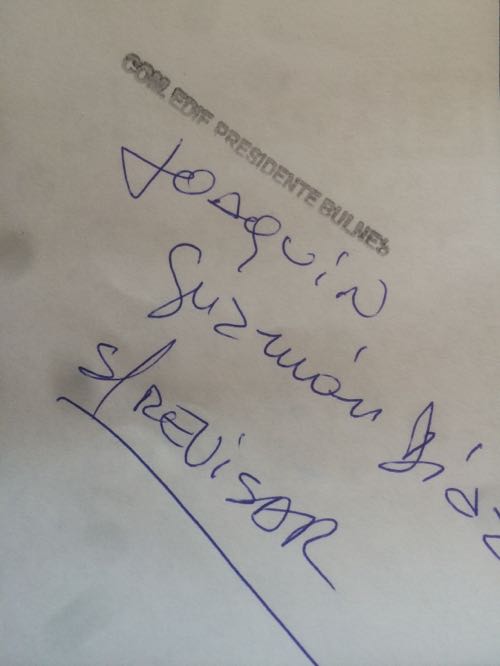 COM. EDIF PRESIDENTE BULNES
JOAQUIN
Guzmán Díaz
S/REVISAR